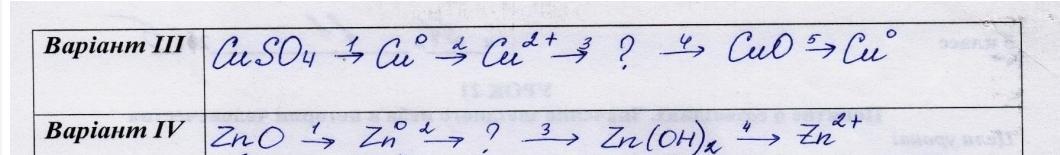 Варіант III CuSO₄ →¹ Cu⁰ →² Cu²⁺ →³ ? →⁴ CuO →⁵ Cu⁰
УРОК 21
Варіант IV ZnO →¹ Zn⁰ →² ? →³ Zn(OH)₂ →⁴ Zn²⁺